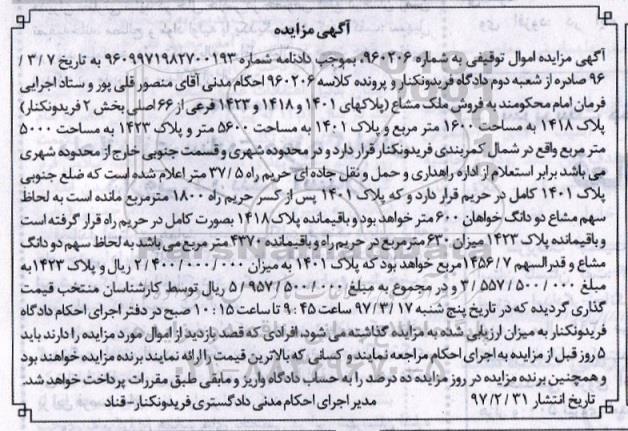 آگهی مزایده
آگهی مزایده اموال توقیفی به شماره ۹۶۰۲۰۶، بموجب دادنامه شماره ۹۶۰۹۹۷۱۹۸۲۷۰۰۱۹۳ به تاریخ ۳/۷/
۹۶ صادره از شعبه دوم دادگاه فریدونکنار و پرونده کلاسه ۹۶۰۲۰۶ احکام مدنی آقای منصور قلی پور و ستاد اجرایی
فرمان امام محکومند به فروش ملک مشاع (پلاکهای ۱۴۰۱ و ۱۴۱۸ و ۱۴۲۳ فرعی از ۶۶ اصلی بخش ۲ فریدونکنار)
پلاک ۱۴۱۸ به مساحت ۱۶۰۰ متر مربع و پلاک ۱۴۰۱ به مساحت ۵۶۰۰ متر و پلاک ۱۴۲۳ به مساحت ۵۰۰۰
متر مربع واقع در شمال کمربندی فریدونکنار قرار دارد و در محدوده شهری و قسمت جنوبی خارج از محدوده شهری
می باشد برابر استعلام از اداره راهداری و حمل و نقل جاده ای حریم راه ۳۷/۵ متر اعلام شده است که ضلع جنوبی
پلاک ۱۴۰۱ کامل در حریم قرار دارد و که پلاک ۱۴۰۱ پس از کسر حریم راه ۱۸۰۰ مترمربع مانده است به لحاظ
سهم مشاع دو دانگ خواهان ۶۰۰ متر خواهد بود و باقیمانده پلاک ۱۴۱۸ بصورت کامل در حریم راه قرار گرفته است
و باقیمانده پلاک ۱۴۲۳ میزان ۶۳۰ مترمربع در حریم راه و باقیمانده ۴۳۷۰ متر مربع می باشد به لحاظ سهم دو دانگ
مشاع و قدرالسهم ۱۴۵۶/۷ مربع خواهد بود که پلاک ۱۴۰۱ به میزان ۲/۴۰۰/۰۰۰/۰۰۰ ریال و پلاک ۱۴۲۳ به
مبلغ ۳/۵۵۷/۵۰۰/۰۰۰ و در مجموع به مبلغ ۵/۹۵۷/۵۰۰/۰۰۰ ریال توسط کارشناسان منتخب قیمت
گذاری گردیده که در تاریخ پنج شنبه ۹۷/۳/۱۷ ساعت ۹:۴۵ تا ساعت ۱۰:۱۵ صبح در دفتر اجرای احکام دادگاه
فریدونکنار به میزان ارزیابی شده به مزایده گذاشته می شود. افرادی که قصد بازدید از اموال مورد مزایده را دارند باید
۵ روز قبل از مزایده به اجرای احکام مراجعه نمایند و کسانی که بالاترین قیمت را ارائه نمایند برنده مزایده خواهند بود
و همچنین برنده مزایده در روز مزایده ده درصد را به حساب دادگاه واریز و مابقی طبق مقررات پرداخت خواهد شد.
تاریخ انتشار ۹۷/۲/۳۱ مدیر اجرای احکام مدنی دادگستری فریدونکنار-قناد